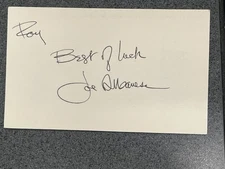 Roy
Best of Luck
Joe